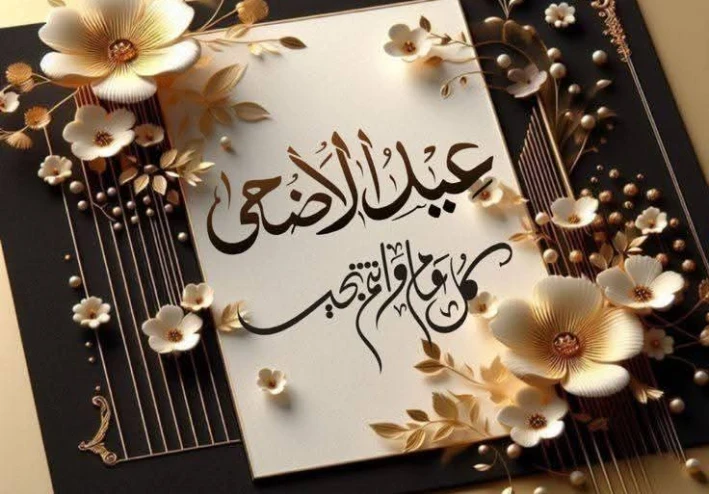 عيد الاضحى
كل يوم وانتم بخير